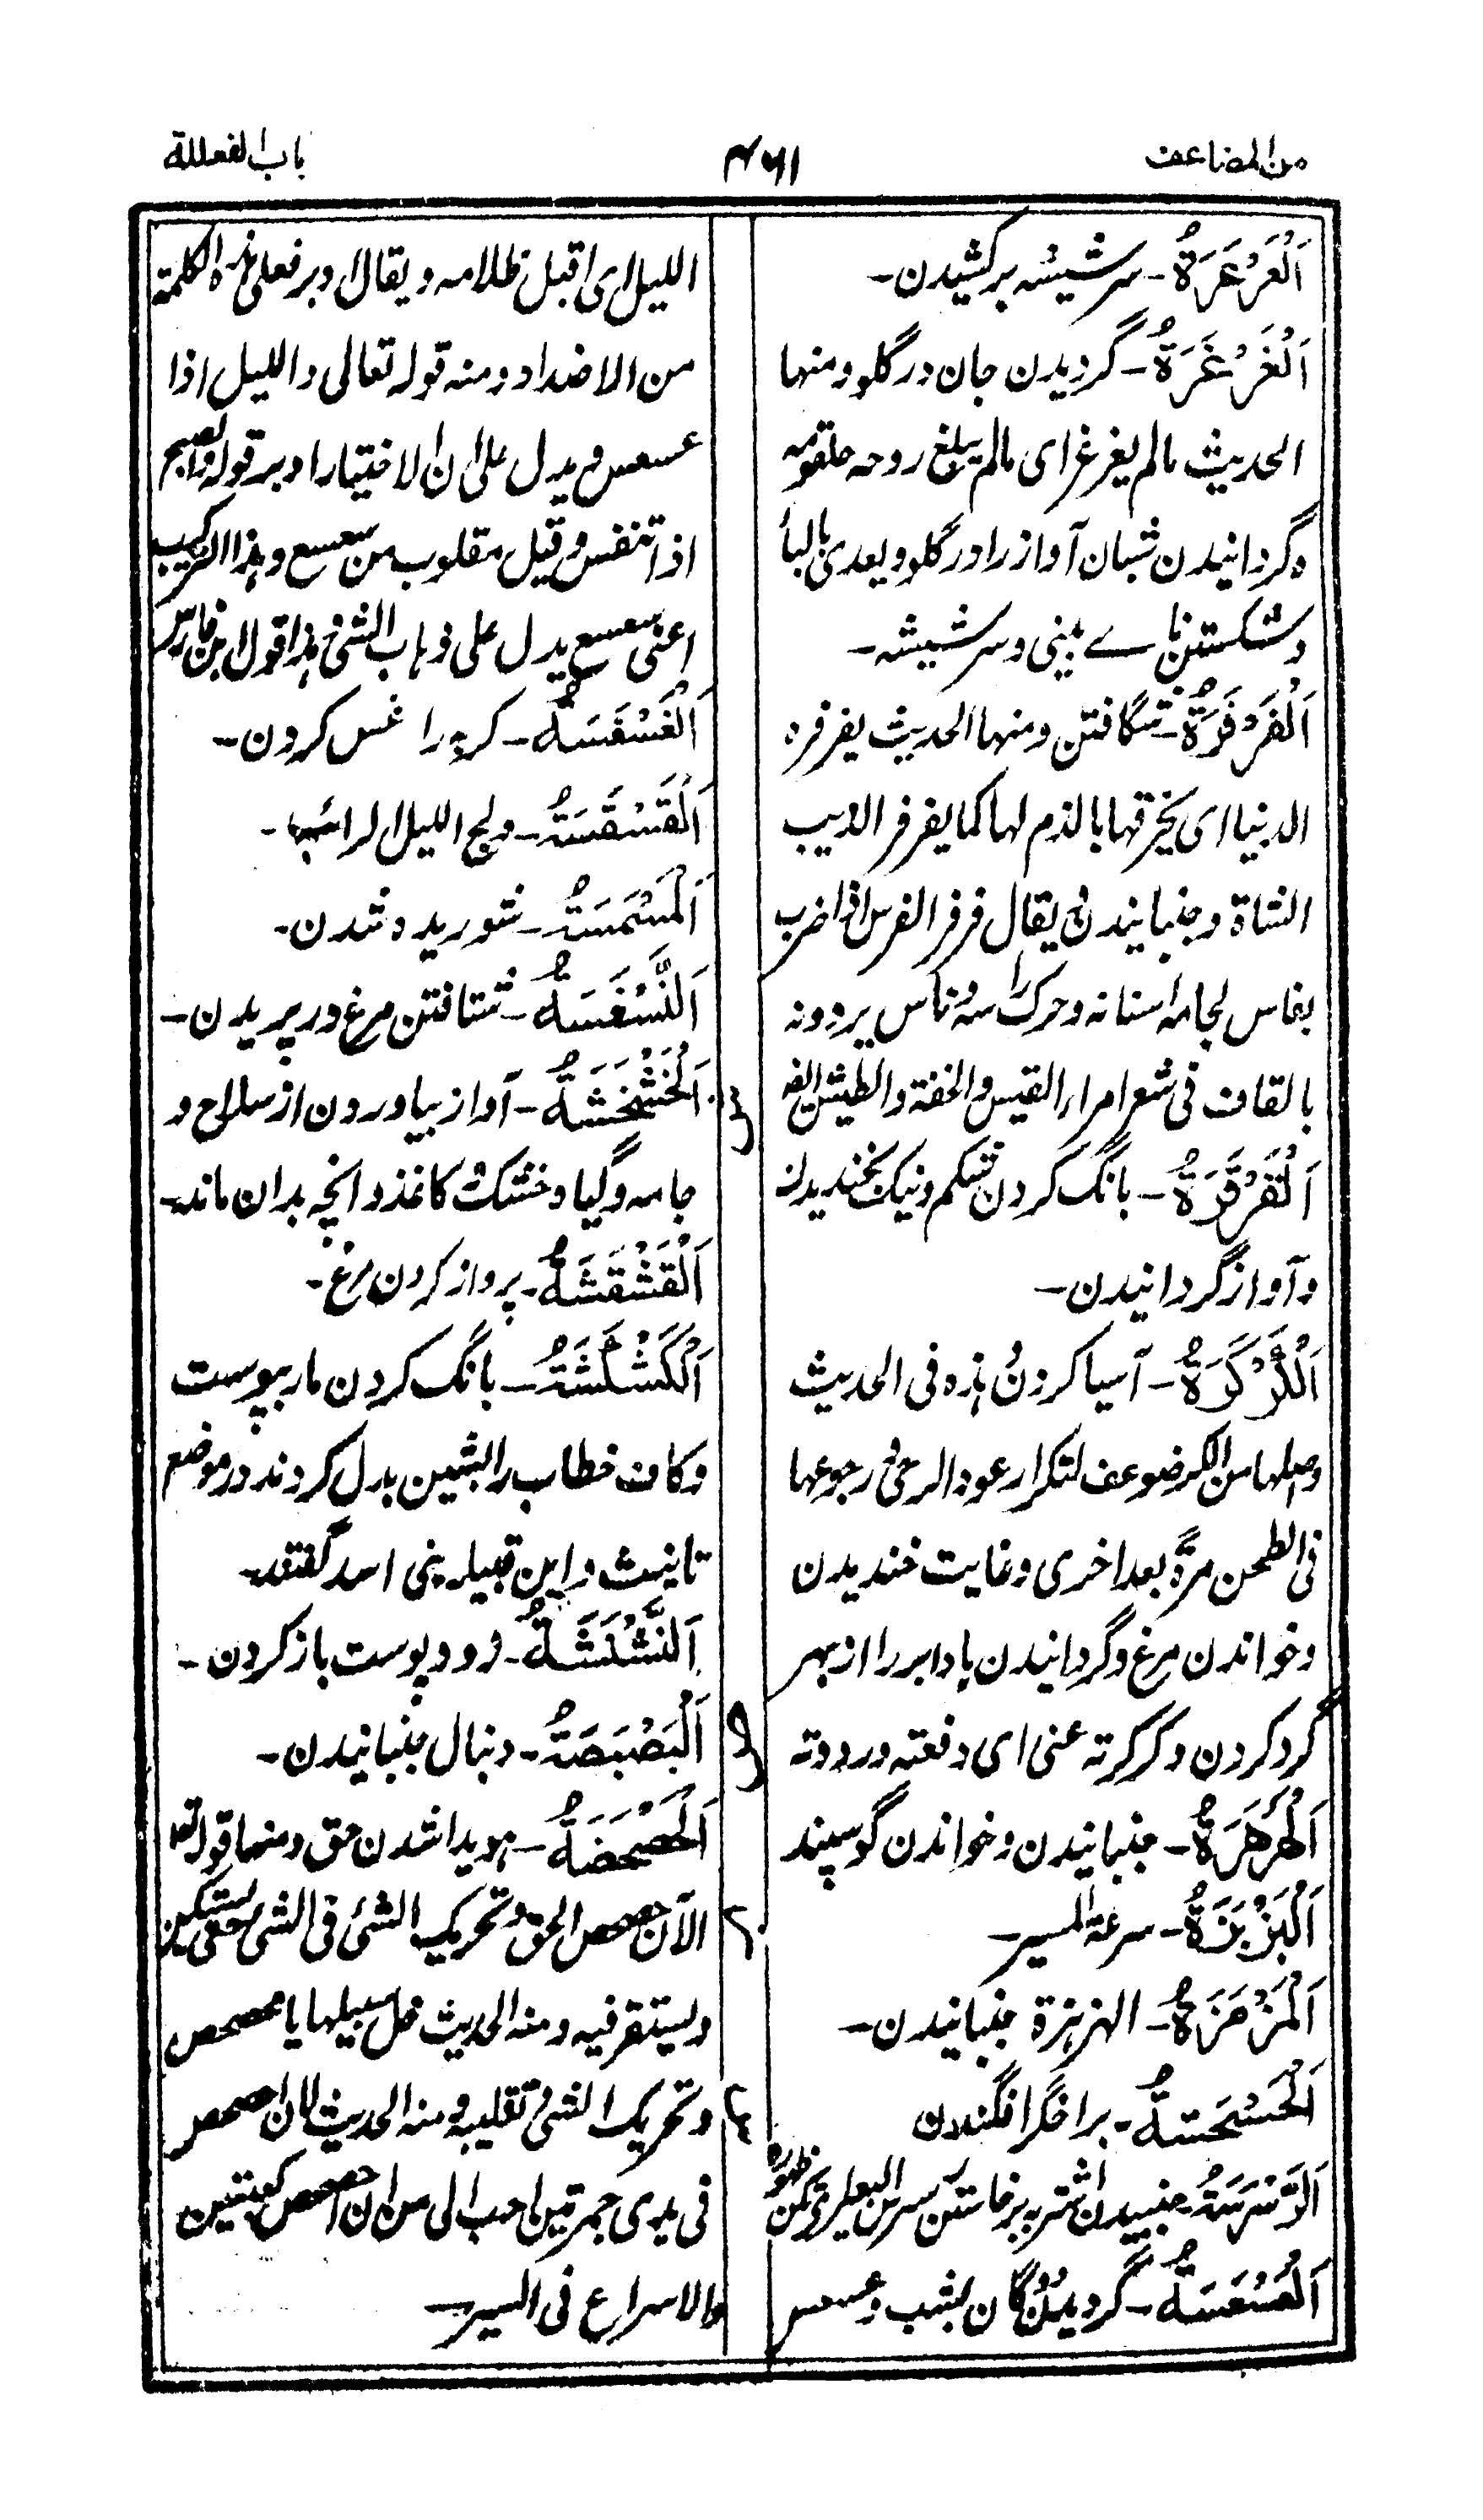 من المضاعف
۴۶۱
باب الفعللة
اَلْعَرْعَرَةُ ـ سر شیشه برکشیدن ـ
اَلْغَرْغَرَةُ ـ گردیدن جان در گلو و منها
الحدیث مالم یغرغر ای مالم یبلغ روحه حلقومه
و گردانیدن شبان آواز را در گلو و یعدی بالباء
و شکستن نای بینی و سر شیشه ـ
اَلْفَرْفَرَةُ ـ شگافتن و منها الحدیث یفرفره
الدنیا ای یخرقها بالذم لها کما یفرفر الذیب
الشاة و جنبانیدن یقال فرفر الفرس اذا ضرب
بفاس لجامه اسنانه و حرک راسه و ناس یروونه
بالقاف فی شعر امراء القیس و الخفة و الطیش ایضا
اَلْقَرْقَرَةُ ـ بانگ کردن شکم و نیک بخندیدن
و آواز گردانیدن ـ
اَلْكَرْكَرَةُ ـ آسیا کردن هذه فی الحدیث
و اصلها من الکر ضوعف لتکرار عود الرحی و رجوعها
فی الطحن مرةً بعد اخری و غایت خندیدن
و خواندن مرغ و گردانیدن باد ابر را از بهر
گرد کردن و کرکرته عنی ای دفعته و رددته
اَلْهَرْهَرَةُ ـ جنبانیدن و خواندن گوسپند
اَلْبَزْبَزَةُ ـ سرعة المسیر ـ
اَلْمَزْمَزَةُ ـ الهزهزة جنبانیدن ـ
اَلْحَسْحَسَةُ ـ بر اخگر افگندن
جنبیدن اشتر به برخاستن
اَلْعَسْعَسَةُ ـ گردیدن گان بشب و عسعس
اللیل ای اقبل ظلامه و یقال ادبر فعلی هذه الکلمة
من الاضداد و منه قوله تعالی و اللیل اذا
عسعس و یدل علی ان الاختیار ادبر قوله و الصبح
اذا تنفس و قیل مقلوب من سعسع و هذا الترکیب
اعنی سعسع یدل علی ذهاب الشئ هذا قول ابن فارس
اَلْغَسْغَسَةُ ـ گربه را غس کردن ـ
اَلْقَسْقَسَةُ ـ دلج اللیل الدائب ـ
اَلْمَسْمَسَةُ ـ شوریده شدن ـ
اَلنَّسْنَسَةُ ـ شتافتن مرغ در پریدن ـ
ش
اَلْخَشْخَشَةُ ـ آواز بیاوردن از سلاح و
جامه و گیاه خشک کاغذ و آنچه بدان ماند ـ
اَلْقَشْقَشَةُ ـ پرواز کردن مرغ ـ
اَلْكَشْكَشَةُ ـ بانگ کردن مار بپوست
و کاف خطاب را بشین بدل کردند در موضع
تانیث و این قبیله بنی اسد گفتند ـ
اَلنَّشْنَشَةُ ـ زود پوست باز کردن ـ
ص
اَلْبَصْبَصَةُ ـ دنبال جنبانیدن ـ
اَلْحَصْحَصَةُ ـ هویدا شدن حق و منها قوله تعا
الآن حصحص الحق و تحریک الشئ فی الشئ حتی یستمکن
و یستقر فیه و منه الحدیث خل سبیلها یا محصحص
و تحریک الشئ و تقلیبه و منه الحدیث لان احصحص
فی یدی جمرتین احب الی من ان احصحص کعبتین
والاسراع فی السیر ـ